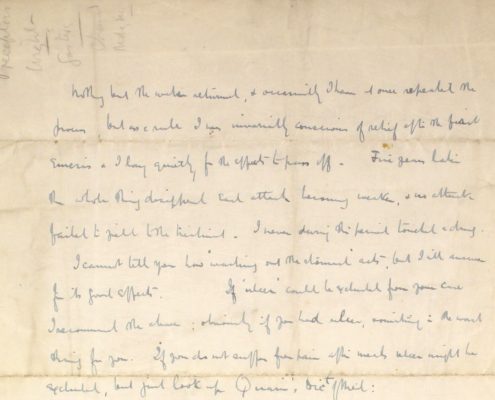 nothing but the water returned, & occasionally I have at once repeated the
process but as a rule I was invariably conscious of relief after the first
Emesis & I hung quietly for the effects to pass off. Five years later
the whole thing disappeared each attack becoming weaker, & no attack
failed to yield to the treatment. I never during the period touched a drug.
I cannot tell you how 'washing out the stomach' acts, but I will answer
for its good effects. If 'ulcer' could be excluded from your case
I recommend the above: obviously if you had ulcer, vomiting is the worst
thing for you. If you do not suffer from pain after meals ulcer might be
excluded, but just look up Quain's Dict of Med: